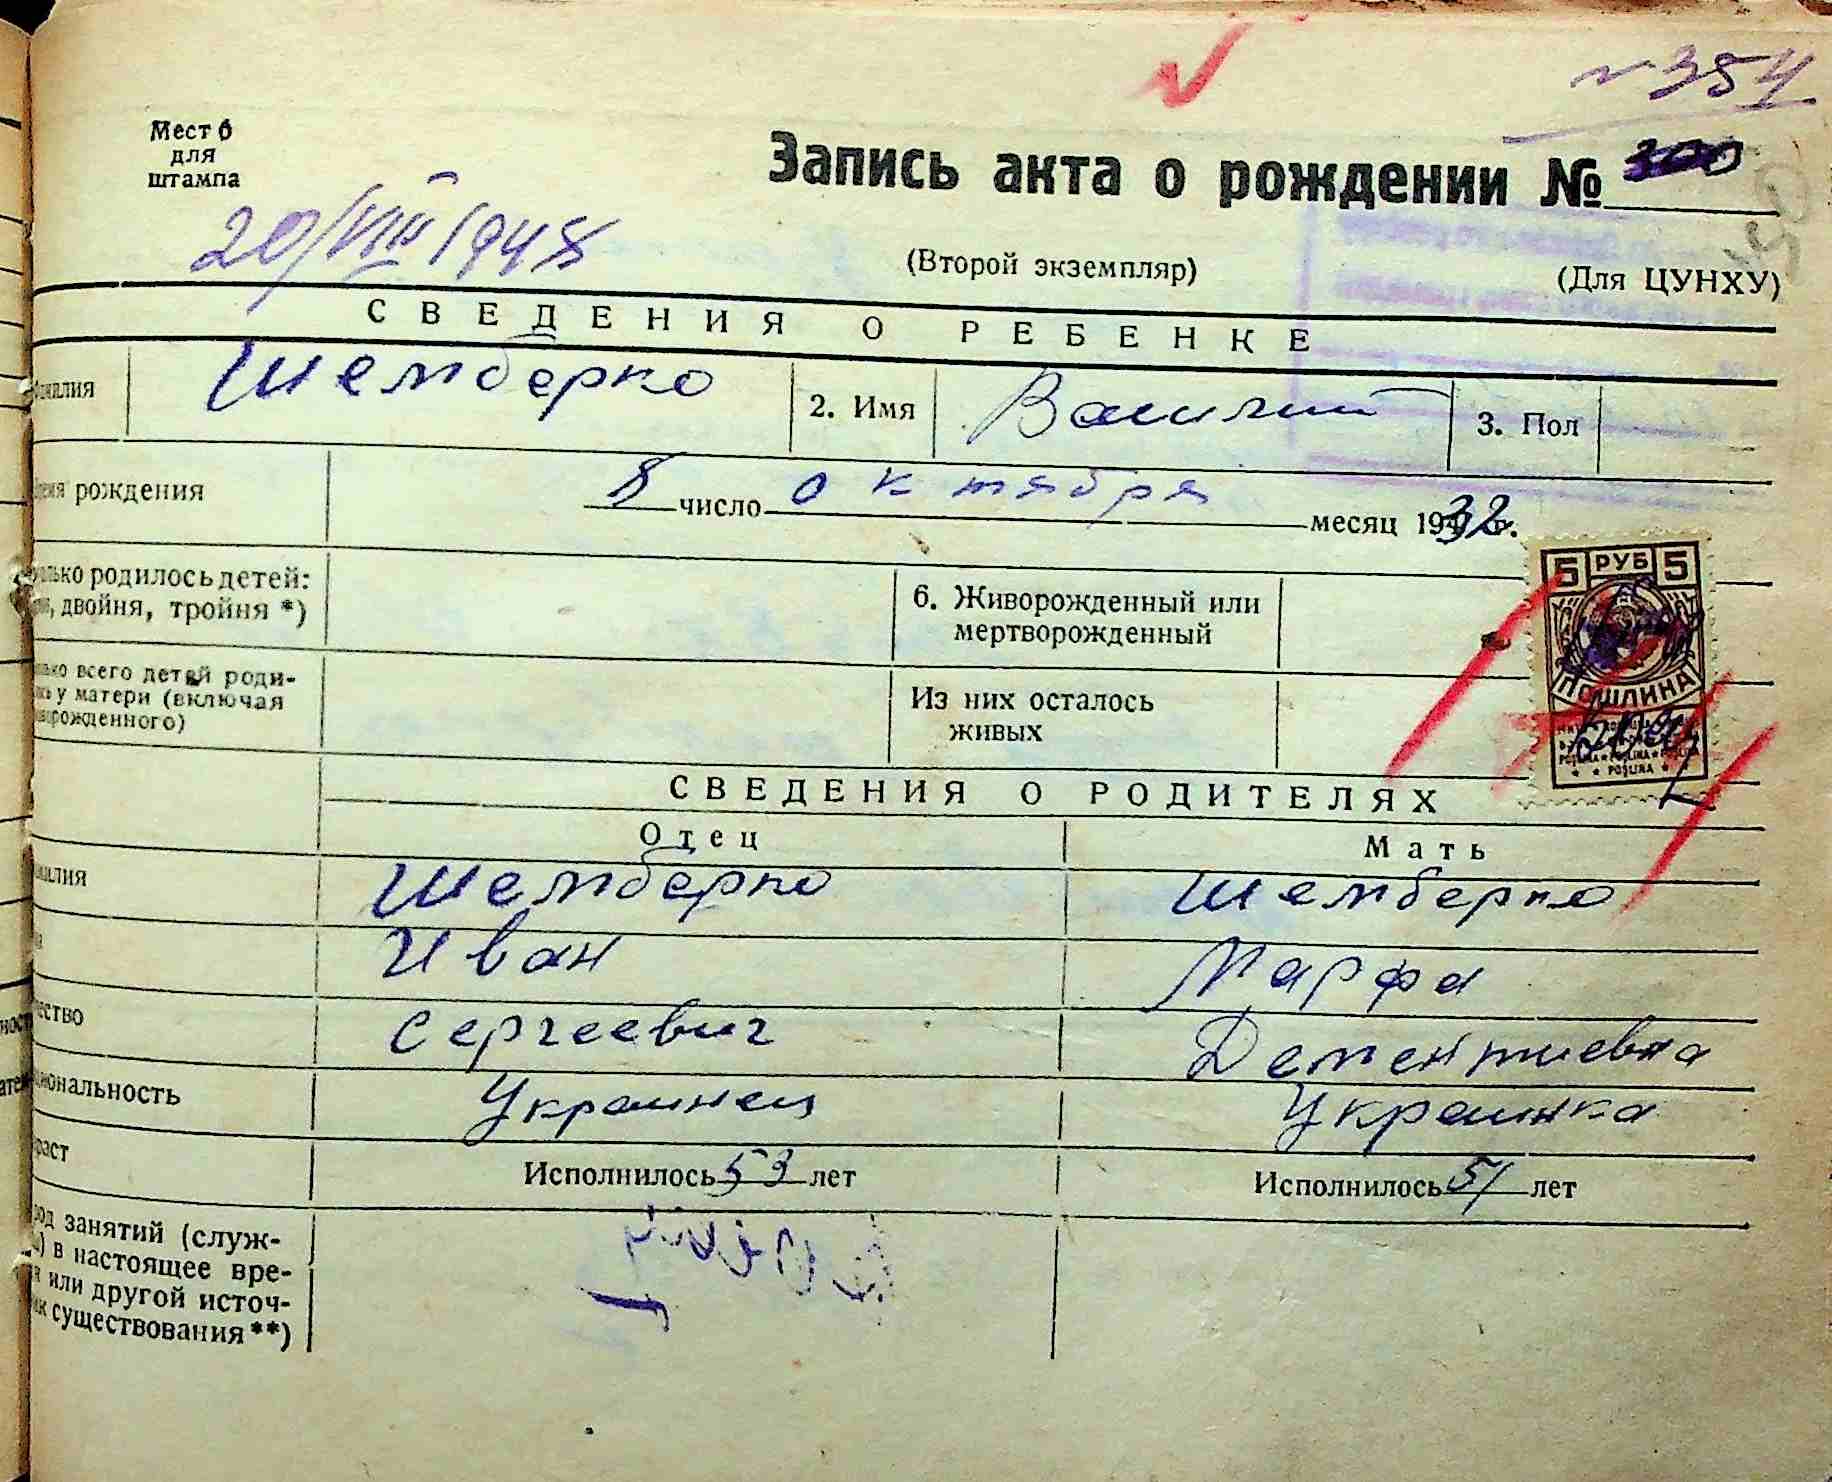 № 354
Место
для
штампа
Запись акта о рождении № 300
20/VIII 1948
(Второй экземпляр)
(Для ЦУНХУ)
СВЕДЕНИЯ О РЕБЕНКЕ
Шемберко
2. Имя
Василий
3. Пол
рождения
8 число октября месяц 1932 г.
родилось детей:
двойня, тройня *)
6. Живорожденный или
мертворожденный
всего детей роди-
у матери (включая
Из них осталось
живых
5 РУБ 5
ПОШЛИНА
POŞLINA
СВЕДЕНИЯ О РОДИТЕЛЯХ
Отец
Мать
Шемберко
Шемберко
Иван
Марфа
Сергеевич
Дементиевна
Украинец
Украинка
Исполнилось 53 лет
Исполнилось 51 лет
занятий (служ-
в настоящее вре-
или другой источ-
существования **)